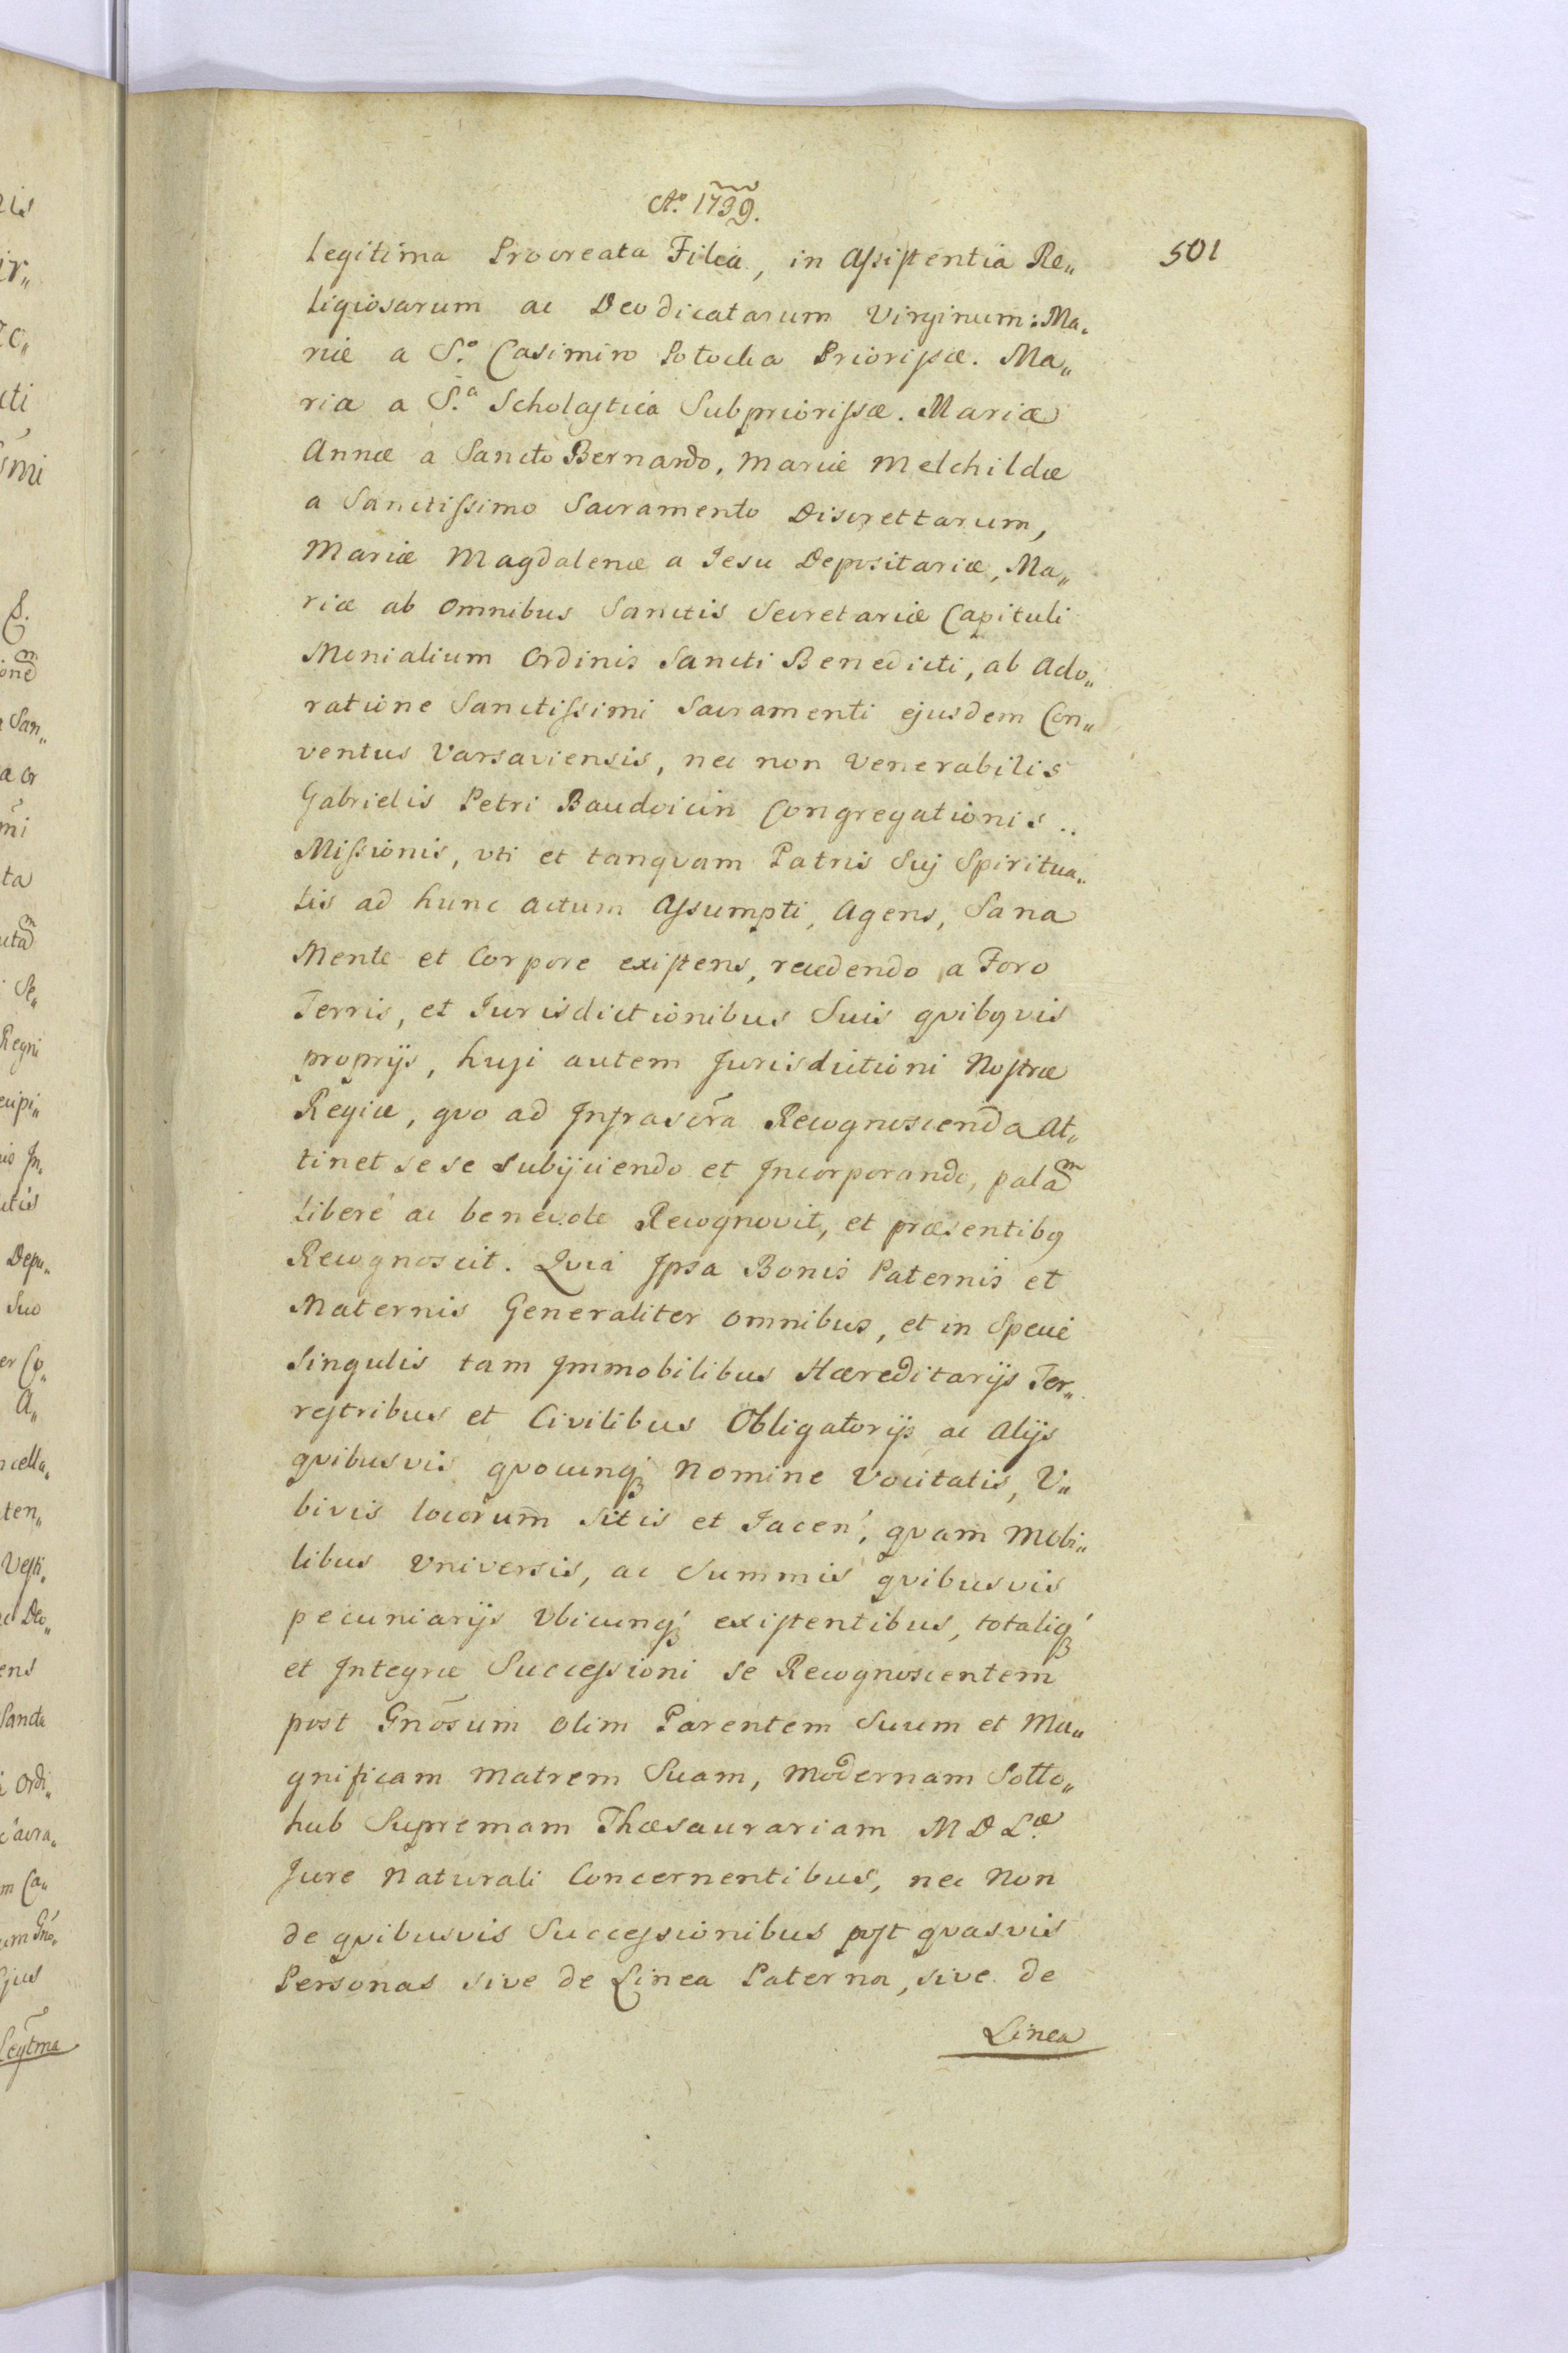 Aº. 1739.
501
Legitima Procreata Filia, in Assistentia Re„
ligiosarum ac Deo dicatarum Virginum: Ma„
riæ a S.º Casimiro Potocka Priorissæ. Ma„
riæ a S.ª Scholastica Subpriorissæ. Mariæ
Annæ a Sancto Bernardo, Mariæ Melchildæ
a Sanctissimo Sacramento Discrettarum,
Mariæ Magdalenæ a Jesu Depositariæ, Ma„
riæ ab Omnibus Sanctis Secretariæ Capituli
Monialium Ordinis Sancti Benedicti, ab Ado„
ratione Sanctissimi Sacramenti ejusdem Con„
ventus Varsaviensis, nec non Venerabilis
Gabrielis Petri Baudoicin Congregationis..
Missionis, uti et tanqvam Patris Suj Spiritua„
lis ad hunc actum Assumpti, Agens, Sana
Mente et Corpore existens, recedendo a Foro
Terris, et Jurisdictionibus Suis qvibqvis
proprijs, huji autem Jurisdictioni Nostræ
Regiæ, qvo ad Infrascr̃a Recognoscenda At„
tinet se se subijciendo et Incorporando, palam
libere ac benevole Recognovit, et præsentibq
Recognoscit. Qvia Ipsa Bonis Paternis et
Maternis Generaliter omnibus, et in Specie
Singulis tam Immobilibus Hæreditarijs Ter„
restribus et Civilibus Obligatorijs ac Alijs
qvibusvis qvocunqȝ Nomine Vocitatis, V„
bivis locorum Sitis et Jacen', qvam Mobi„
libus Vniversis, ac Summis qvibusvis
pecuniarijs Vbicunqȝ existentibus, totaliqȝ
et Integræ Successioni se Recognoscentem
post Gnõsum olim Parentem Suum et Ma„
gnificam Matrem Suam, modernam Sollo„
hub Supremam Thæsaurariam M D L.æ
Jure Naturali Concernentibus, nec Non
de qvibusvis Successionibus post qvasvis
Personas sive de Linea Paterna, sive de
Linea